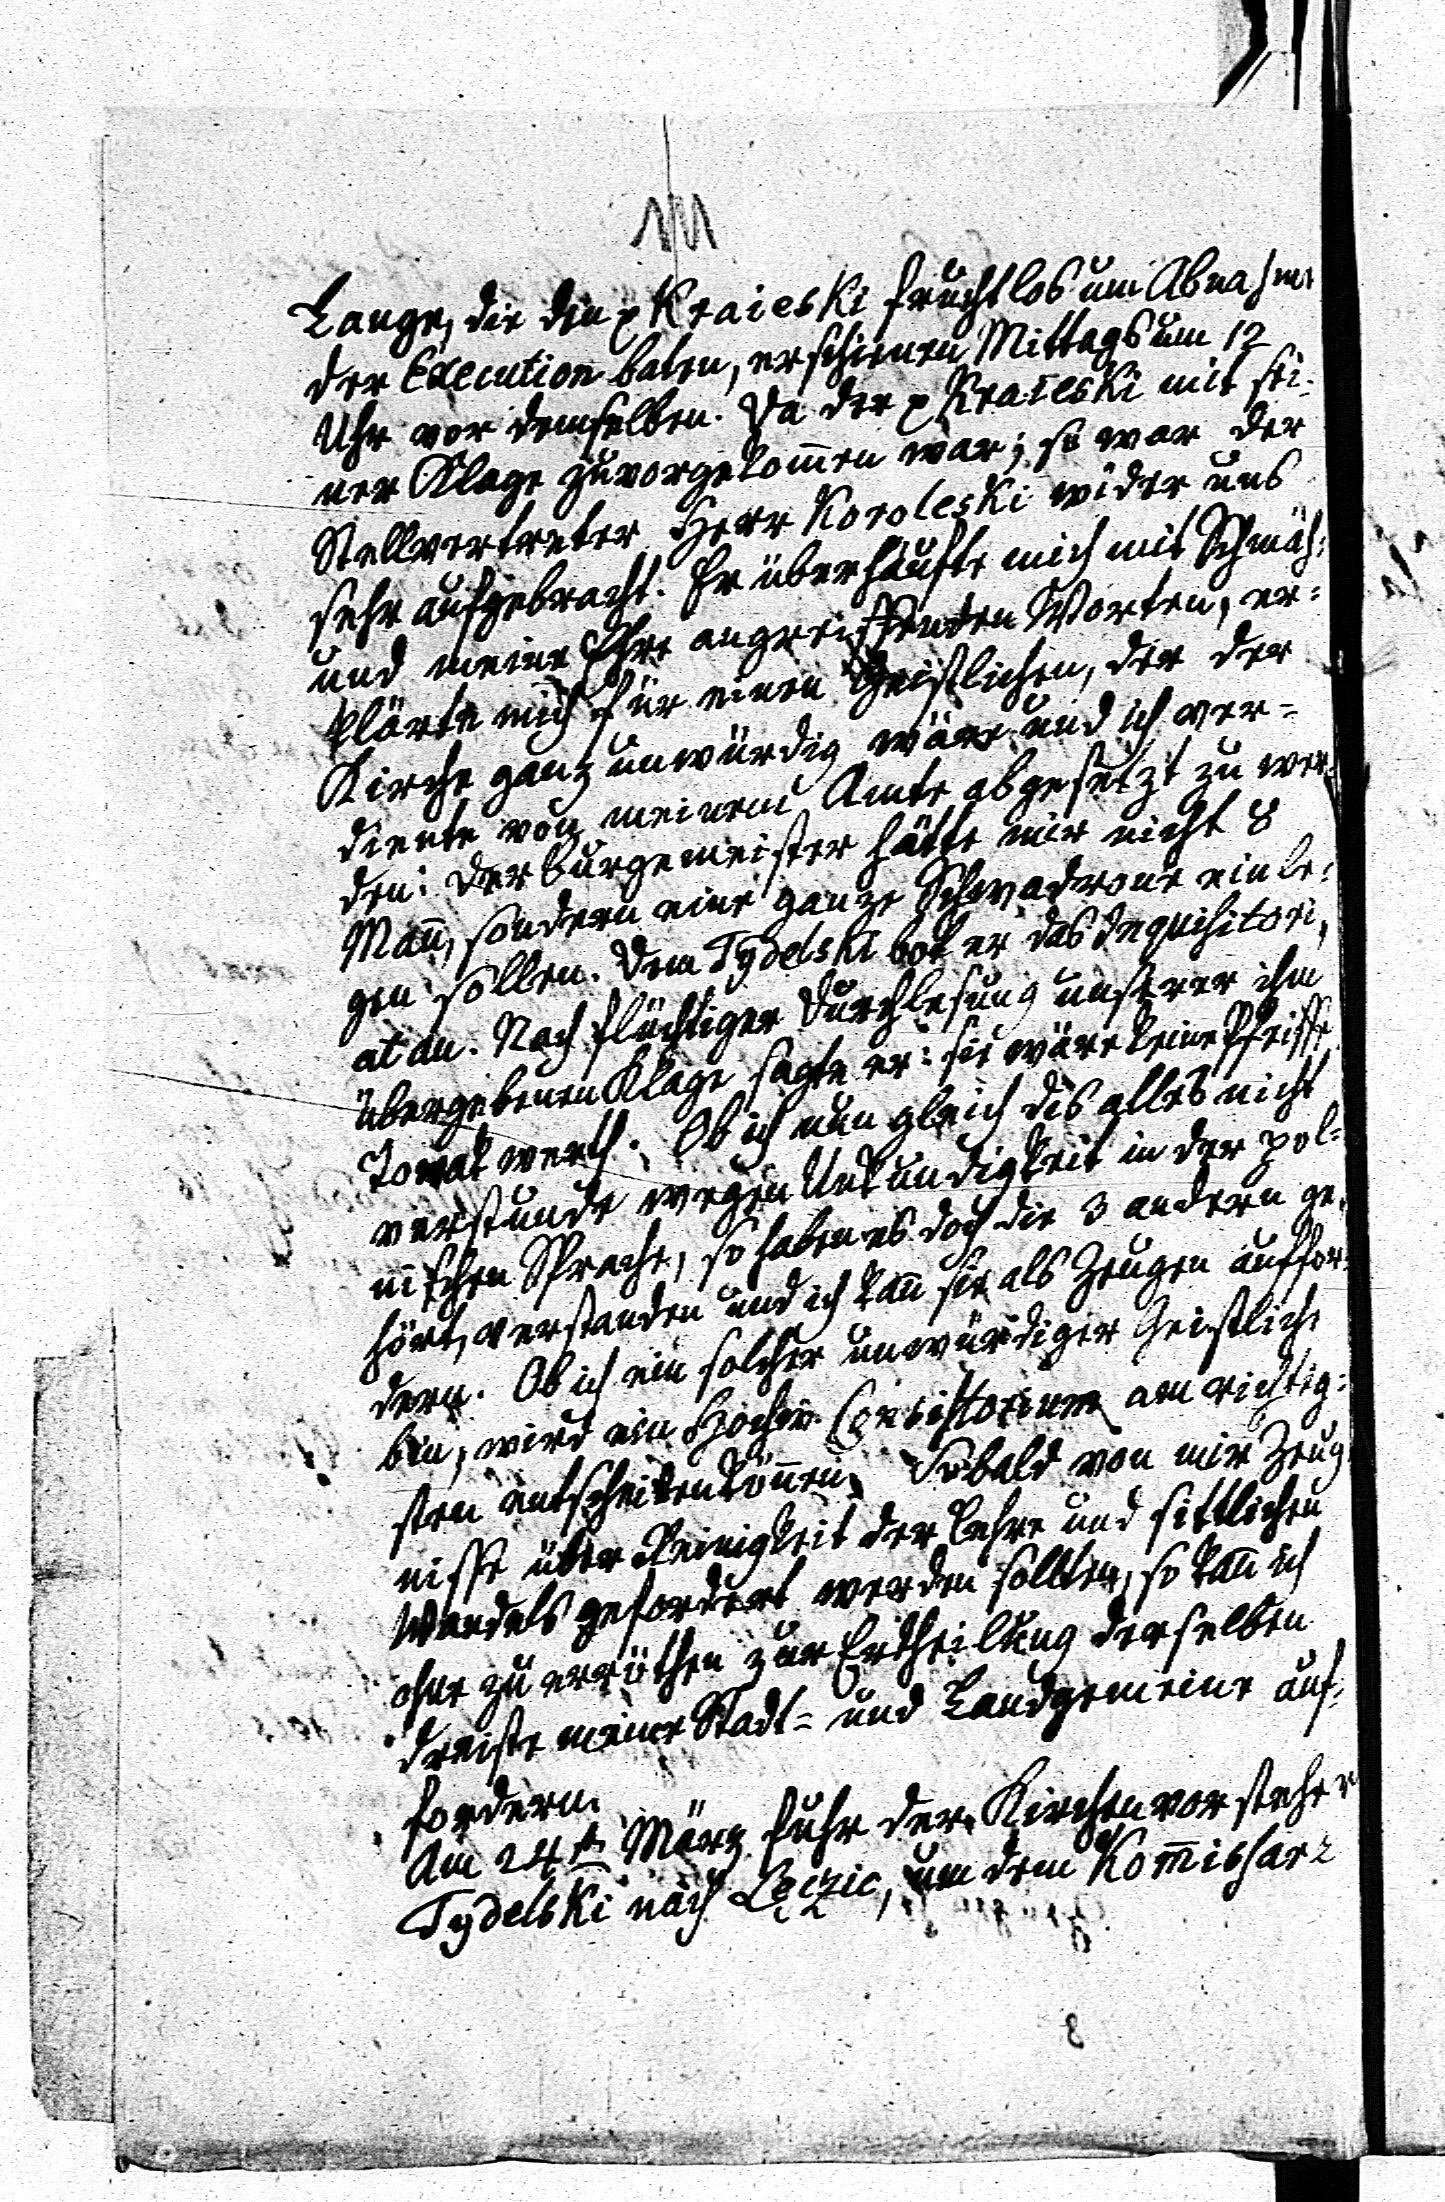 Lange, die den p Kraieski fruchtlos um Abnahme
der Execution baten, erschienen Mittags um 12
Uhr vor demselben. Da der p Kraieski mit sei-
ner Klage zuvorgekom̄en war; so war der
Stellvertreter Herr Koroleski wider uns
sehr aufgebracht. Er überhäufte mich mit Schmäh-
und meine Ehre angreiffenden Worten, er=
klärte mich für einen Geistlichen, der der
Kirche ganz unwürdig wäre und ich ver=
diente von meinem Amte abgesetzt zu wer=
den: der Burgemeister hätte mir nicht 8
Man̄, sondern eine ganze Schwadrone einle=
gen sollen. Dem Tydelski bot er das Inquisitori,
at an. Nach flüchtiger Durchlesung unserer ihm
übergebenen Klage sagte er: sie wäre keine Pfeiffe
Toback werth. Ob ich nun gleich dis alles nicht
verstunde wegen Unkundigkeit in der pol=
nischen Sprache, so haben es doch die 3 andern ge=
hört, verstanden und ich kan̄ sie als Zeugen auffor=
dern. Ob ich ein solcher unwürdiger Geistliche
bin, wird ein Hochw. Consistorium am richtig=
sten entscheiden kön̄en. Sobald von mir Zeug=
nisse über Reinigkeit der Lehre und sittlichen
Wandels gefordert werden sollten, so kan̄ ich
ohne zu erröthen zur Ertheilung derselben
dreiste meine Stadt= und Landgemeine auf=
fordern.
Am 24t März fuhr der Kirchenvorsteher
Tydelski nach Łęczic, um dem Kom̄issarz